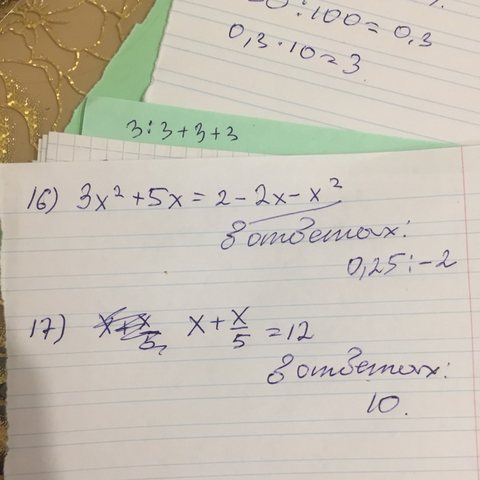 0 : 100 = 0,3
0,3 · 10 = 3
3 : 3 + 3 + 3
16) 3x² + 5x = 2 - 2x - x²
в ответах:
0,25 ; -2
17) x + x/5 = 12
в ответах:
10.